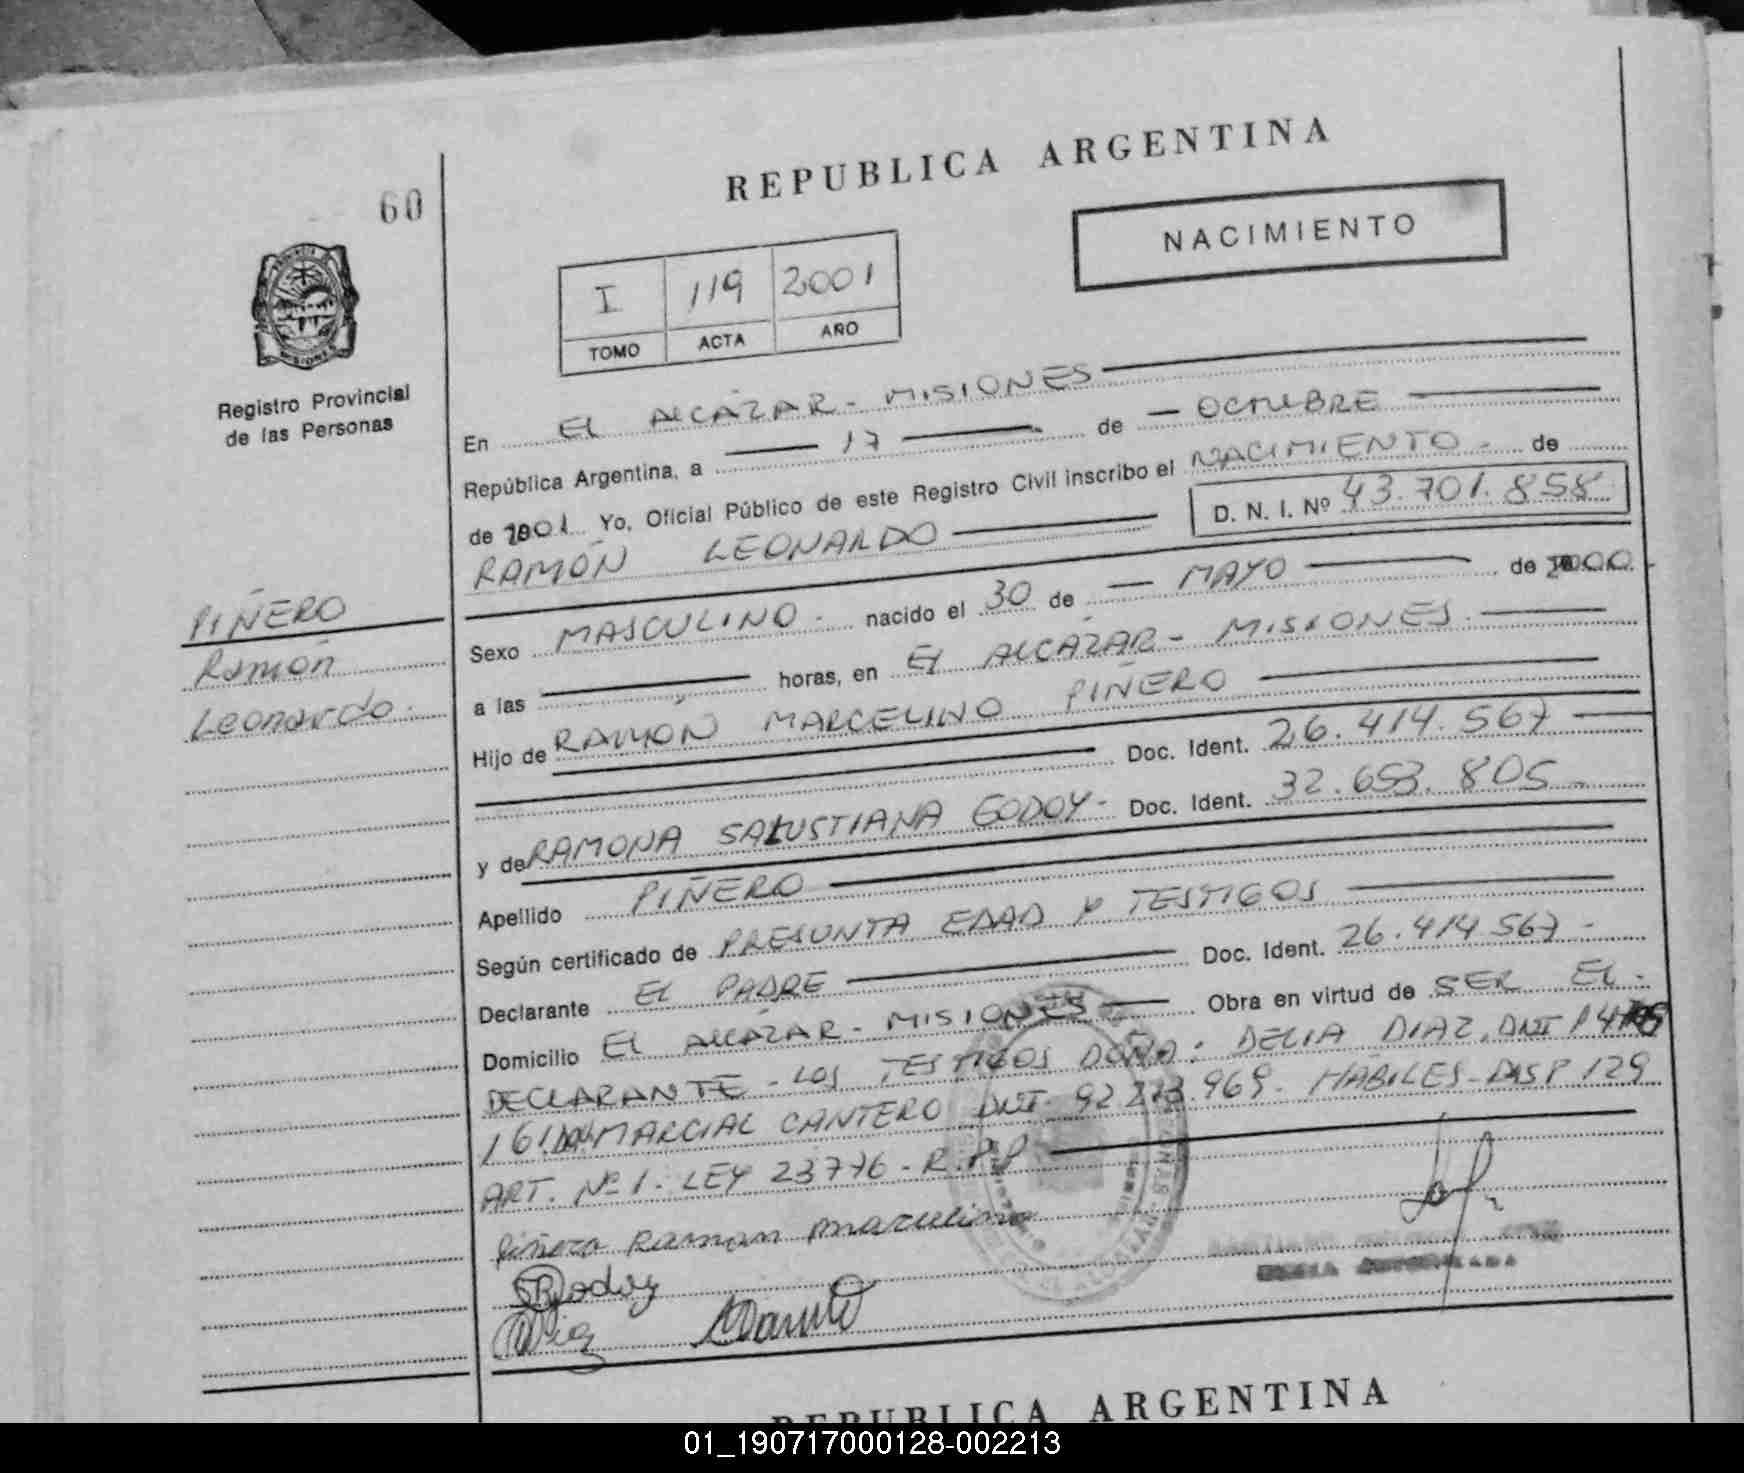 REPUBLICA ARGENTINA
60
NACIMIENTO
I 119 2001
TOMO ACTA AÑO
Registro Provincial
de las Personas
En EL ALCAZAR - MISIONES
República Argentina, a 17 de OCTUBRE
de 2001 Yo, Oficial Público de este Registro Civil inscribo el NACIMIENTO - de
RAMÓN LEONARDO D. N. I. Nº 43.701.858
PIÑERO
Ramón
Leonardo.
Sexo MASCULINO - nacido el 30 de MAYO de 2000
a las horas, en EL ALCÁZAR - MISIONES
Hijo de RAMÓN MARCELINO PIÑERO
Doc. Ident. 26.414.567
y de RAMONA SALUSTIANA GODOY - Doc. Ident. 32.653.805
Apellido PIÑERO
Según certificado de PRESUNTA EDAD Y TESTIGOS
Declarante EL PADRE Doc. Ident. 26.414.567 -
Domicilio EL ALCÁZAR - MISIONES Obra en virtud de SER EL
DECLARANTE - LOS TESTIGOS DOÑA: DELIA DIAZ, DNI
MARCIAL CANTERO DNI. 92.213.969 - HÁBILES - DISP 129
ART. Nº 1 - LEY 23776 - R.P.P
Piñero Ramon Marcelino
Godoy
REPUBLICA ARGENTINA
01_190717000128-002213